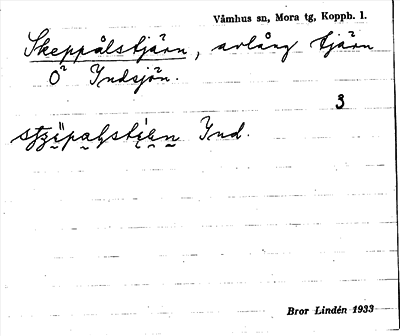 Våmhus sn, Mora tg, Kopph. l.
Skeppålstjärn, avlång tjärn
Ö Indsjön.
3
Ind.
Bror Lindén 1933